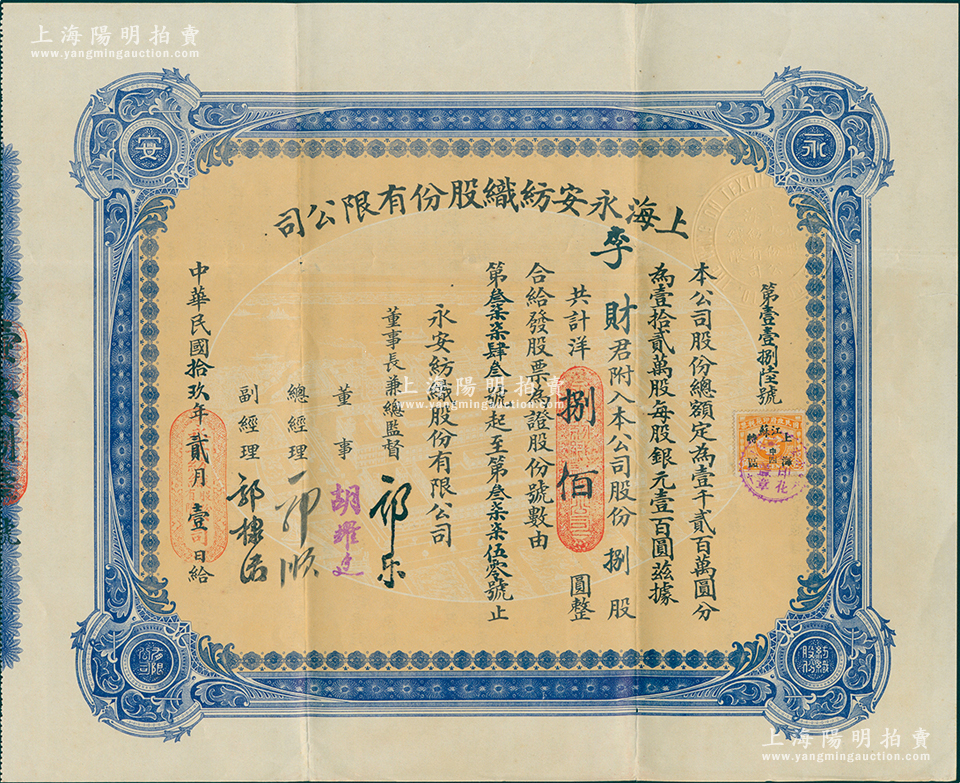 上海陽明拍賣
www.yangmingauction.com
永
安
紡織股份
有限公司
上海永安紡織股份有限公司
第壹壹捌陸號
本公司股份總額定為壹千貳百萬圓分
為壹拾貳萬股每股銀元壹百圓茲據
李財君附入本公司股份捌股
共計洋捌佰圓整
合給發股票為證股份號數由
第叁柒柒肆叁號起至第叁柒柒伍零號止
永安紡織股份有限公司
董事長兼總監督 郭乐
董事 胡耀廷
總經理 郭順
副經理 郭棣活
中華民國拾玖年貳月壹日給
上海
江蘇
特區
上海陽明拍賣
www.yangmingauction.com
上海陽明拍賣
www.yangmingauction.com